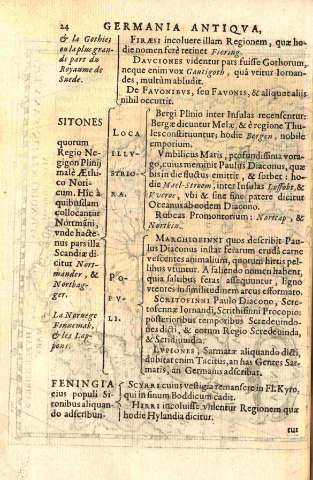 24 GERMANIA ANTIQVA,
& la Gothies
ou la plus gran-
de part du
Royaume de
Suede.
FIRÆSI incoluere illam Regionem, quæ ho-
die nomen ferè retinet Fiering.
DAVCIONES videntur pars fuisse Gothorum,
neque enim vox Gautigoth, quâ vtitur Iornan-
des, multùm abludit.
De FAVONIBVS, seu FAVONIS, & alique aliis
nihil occurrit.
SITONES
quorum
Regio Ne-
gigon Plinij
malè Æthi-
co Nori-
cum. Hîc à
quibusdam
collocantur
Nortmãni,
vnde hacte-
nus pars illa
Scandiæ di-
citur Nort-
mander, &
Nortbag-
ger.
La Noruege
Fennemak,
& les Lap-
pons.
LOCA
ILLV-
STRIO-
RA.
Bergi Plinio inter Insulas recensentur:
Bergæ dicuntur Melæ, & è regione Thu-
les constituuntur, hodie Bergen, nobile
emporium.
Vmbilicus Maris, profundissima vorago,
cuius meminit Paulus Diaconus, quæ
bis in die fluctus emittit, & sorbet: ho-
die Mael-Stroom, inter Insulas Leffoht, &
Vveroe, vbi & sine fine patere dicitur
Oceanus ab eodem Diacono.
Rubeas Promontorium: Nortcap, &
Nortkin.
PO-
PV-
LI.
MARCHTOFINNI quos describit Pau-
lus Diaconus instar ferarum crudâ carne
vescentes animalium, quorum hirtis pel-
libus vtuntur. A saliendo nomen habent,
quia salibus feras assequuntur, ligno
vtentes in similitudinem arcus efformato.
SCRITOFINNI Paulo Diacono, Scre-
tofennæ Iornandi, Scrithifinni Procopio:
posterioribus temporibus Scredeuindo-
nes dicti, & eorum Regio Scredeuinda,
& Scridiuindia.
LVPIONES, Sarmatæ aliquando dicti,
dubitat enim Tacitus, an has Gentes Sar-
matis, an Germanis adscribat.
FENINGIA
eius populi Si-
tonibus aliquan-
do adscribun-
SCYRRI cuius vestigia remansere in FL Kyro,
qui in sinum Boddicum cadit.
HIRRI incoluisse videntur Regionem quæ
hodie Hylandia dicitur.
tui